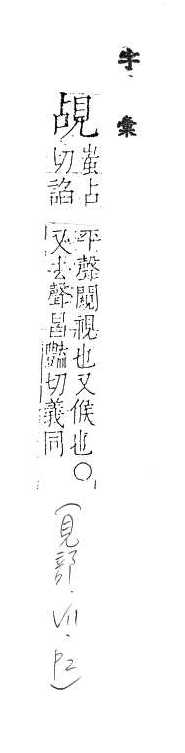 字彙
覘
蚩占
切諂
平聲闚視也又候也○
又去聲昌豔切義同
(見部.VII.P2)